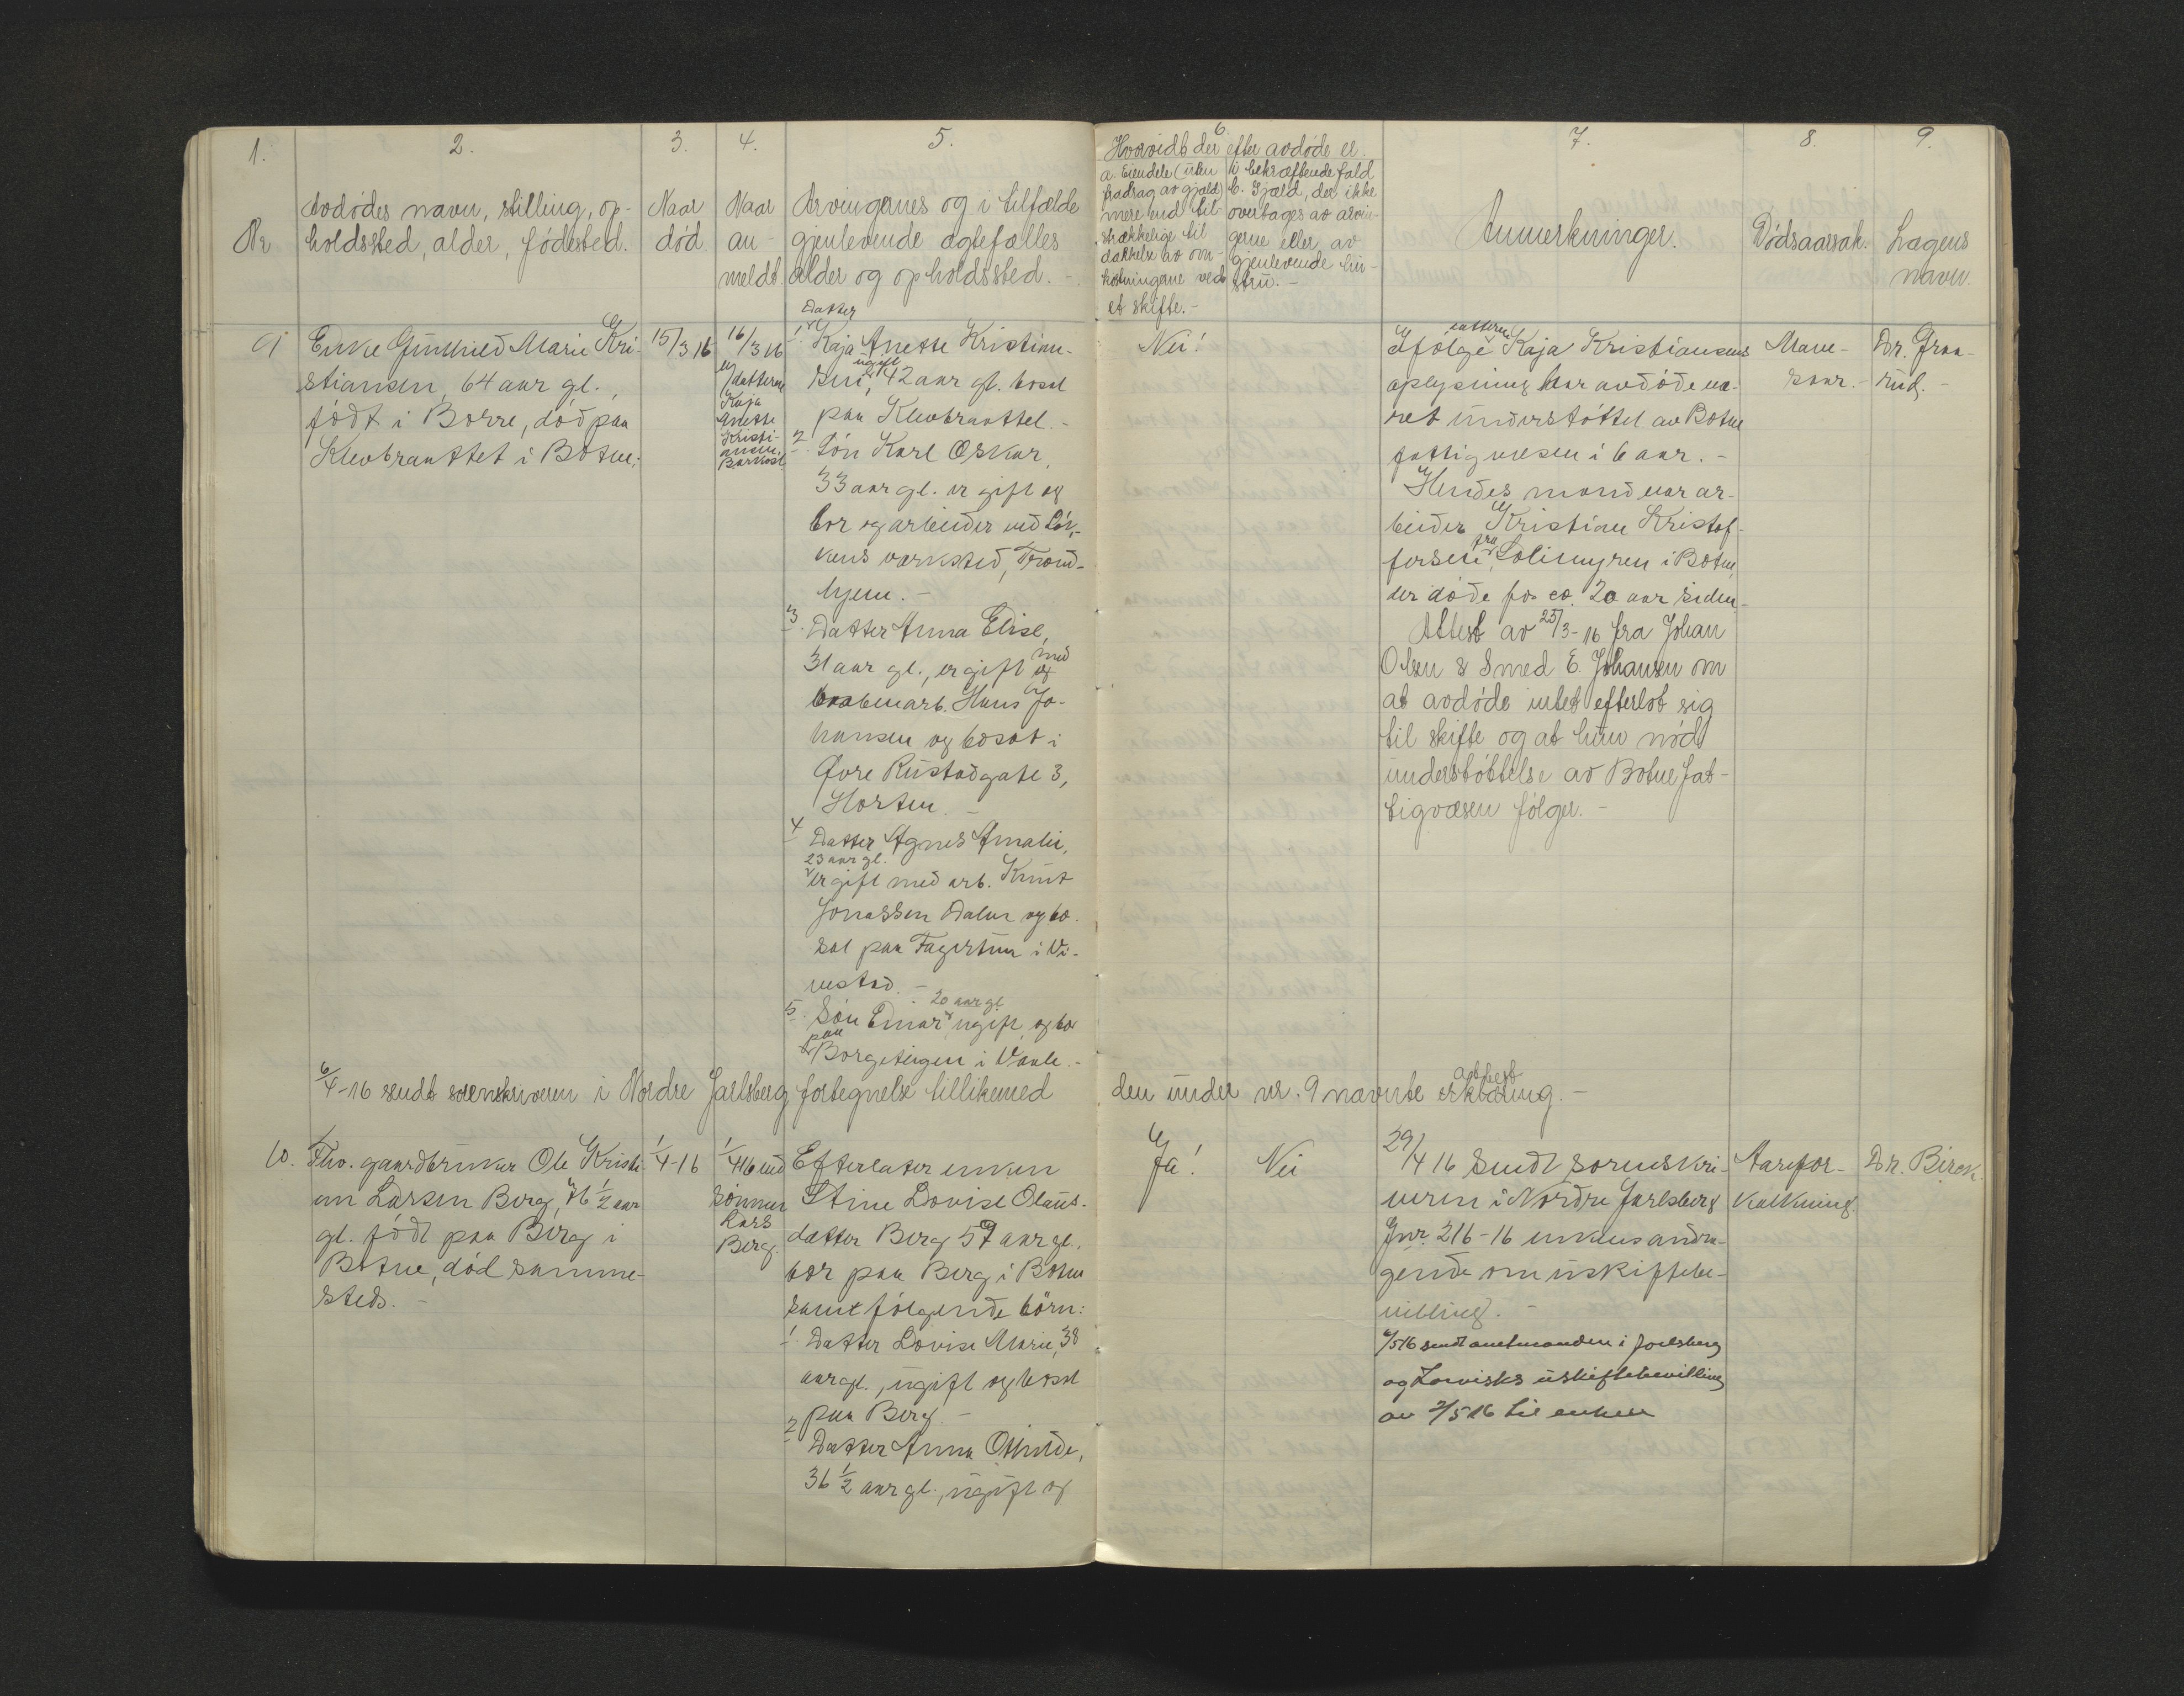 1.
2.
3.
4.
5.
6.
7.
8.
9.
Nr
Avdødes navn, stilling, op-
holdssted, alder, fødested.
Naar
død
Naar
an-
meldt.
Arvingernes og i tilfælde
gjenlevende ægtefælles
alder og opholdssted. -
Hvorvidt der efter avdøde er
a. Eiendele (uten
fradrag av gjæld)
mere end til-
strækkelige til
dækkelse av om-
kostningerne ved
et skifte. -
i bekræftende fald
b. Gjæld, der ikke
overtages av arvin-
gerne eller av
gjenlevende hu-
stru. -
Anmerkninger.
Dødsaarsak.
Lægens
navn.
9
Enke Gunhild Marie Kri-
stiansen, 64 aar gl.,
født i Borre, død paa
Klevbraattet i Botne.
15/3 16
16/3 16
v/datteren
Kaja
Anette
Kristi-
ansen,
Datter
1. Kaja Anette Kristian-
sen, ugift, 42 aar gl. bosat
paa Klevbraattet. -
2. Søn Karl Oskar,
33 aar gl. er gift og
bor og arbeider ved Løk-
kens verksted, Trond-
hjem. -
3. Datter Anna Elise,
31 aar gl., er gift med
Hans Jo-
hansen og bosat i
Øvre Rustadgate 3,
Horten. -
4. Datter Agnes Amalie,
23 aar gl.
er gift med arb. Knut
Jonassen Dalen og bo-
sat paa Fagertun i Vi-
vestad. -
5. Søn Einar, 20 aar gl. ugift, og bor
paa
Borgeteigen i Vaale. -
Nei!
Ifølge datteren Kaja Kristiansens
oplysning har avdøde væ-
ret understøttet av Botne
fattigvæsen i 6 aar. -
Hendes mand var ar-
beider Kristian Kristof-
fersen, fra Solimyren i Botne,
der døde for ca. 20 aar siden.
Attest av 25/3-16 fra Johan
Olsen & Smed E. Johansen om
at avdøde intet efterlot sig
til skifte og at hun nød
understøttelse av Botne fat-
tigvæsen følger. -
Mave-
saar. -
Dr. Graa-
rud. -
6/4-16 sendt sorenskriveren i Nordre Jarlsberg fortegnelse tillikemed den under nr. 9 nævnte attest erklæring. -
10.
Fhv. gaardbruker Ole Kristi-
an Larsen Berg, 76 1/2 aar
gl. født paa Berg i
Botne, død samme-
steds. -
1/4-16
1/4 16 ved
sønnen
Lars
Berg.
Efterlater enken
Stine Lovise Olaus-
datter Berg 57 aar gl.,
bor paa Berg i Botne
samt følgende børn:
1. Datter Lovise Marie, 38
aar gl., ugift og bosat
paa Berg. -
2. Datter Anna Othilde,
36 1/2 aar gl., ugift og
Ja!
Nei
29/4 16 Sendt sorenskri-
veren i Nordre Jarlsberg
Jnr. 216-16 enkens andra-
gende om uskiftebe-
villing. -
6/5 16 sendt amtmanden i Jarlsberg
og Larviks uskiftebevilling
av 2/5 16 til enken
Aarefor-
kalkning
Dr. Birck.